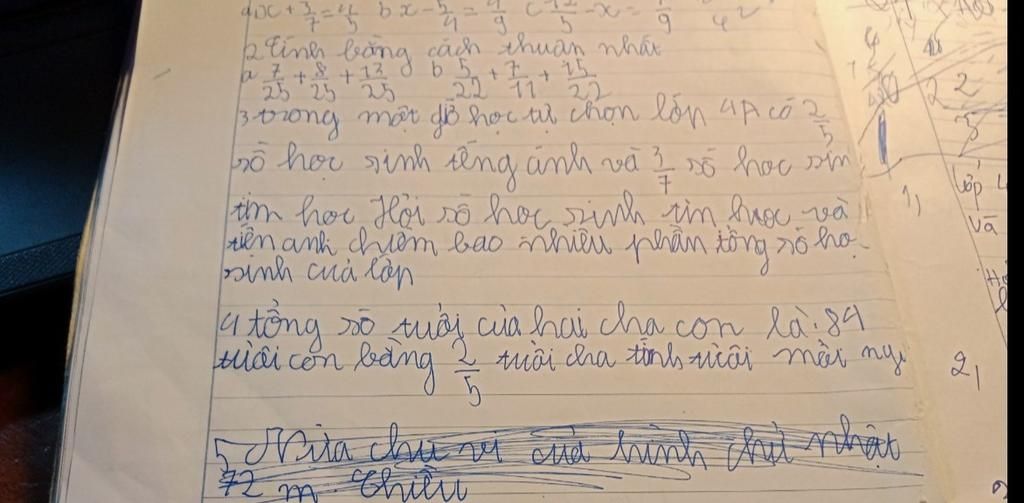 a x + 3/7 = 4/5 b x - 5/4 = 4/9 c 12/5 - x = 1/9
2 Tính bằng cách thuân nhất
a 7/25 + 8/25 + 13/25 b 5/22 + 7/11 + 15/22
3 trong một giờ học tự chọn lớp 4A có 2/5
số học sinh tếng ánh và 3/7 số học sin
tim học Hỏi số học sinh tin học và
tiên anh chiêm bao nhiêu phần tổng số họ
sinh của lớp
4 tổng số tuổi của hai cha con là. 84
tuổi con bằng 2/5 tuổi cha tính tuổi mỗi ngi
5, Nửa chu vi của hình chữ nhật
72 m. Chiều
1,
2,
lớp 4
và